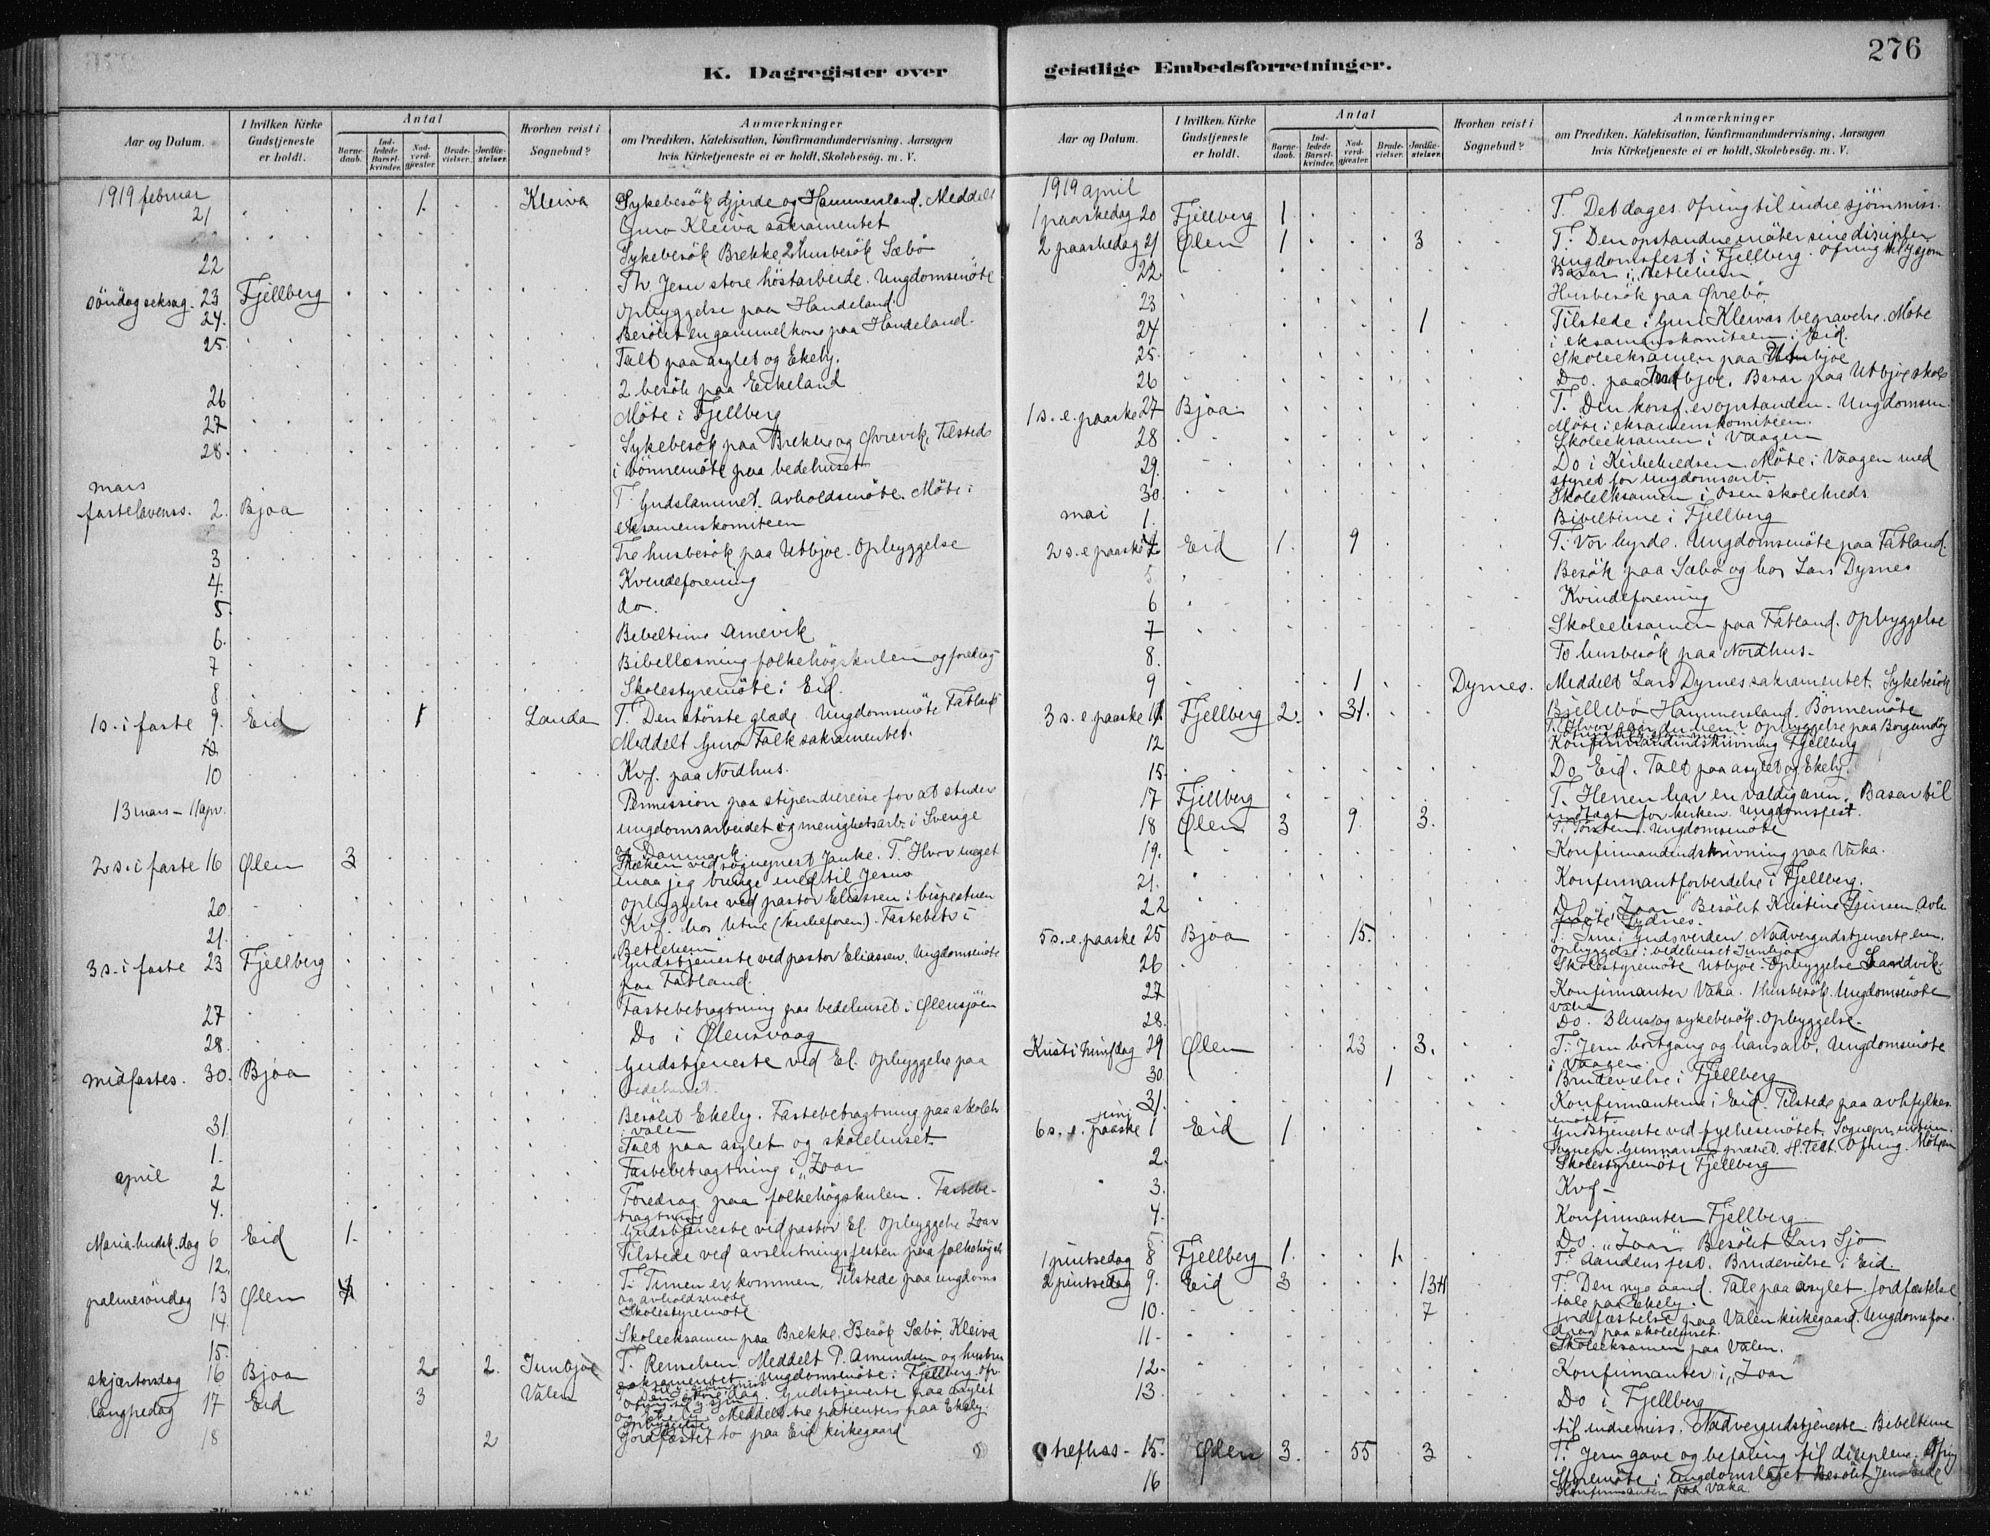 276
K. Dagregister over
geistlige Embedsforretninger.
Aar og Datum.
I hvilken Kirke Gudstjeneste er holdt.
Antal
Barnedaab.
Indledede Barselkvinder.
Nadverdgjæster.
Brudevielser.
Jordfæstelser.
Hvorhen reist i Sognebud?
Anmærkninger
om Prædiken, Katekisation, Konfirmandundervisning, Aarsagen
hvis Kirketjeneste ei er holdt, Skolebesøg. m. V.
1919 februar
21 1. Kleiva Sykebesök Gjerde og Hammersland. Meddelt
Guro Kleiva sakramentet
Sykebesök Brekke, 2 husbesök Sæbö
22
Th. Jesu store höstarbeide. Ungdomsmöte
söndag seksag. 23 Fjellberg
Opbyggelse paa Handeland.
24.
Besökt en gammel kone paa Handeland.
25.
Talt paa asylet og Ekely.
2 besök paa Eikeland
26
Möte i Fjellberg
27
Sykebesök paa Brekke og Øvrevik, Tilstede
28.
i bönnemöte paa bedehuset
mars
T. Gudslammet. Avholdsmöte. Möte i
fastelavenss. 2. Bjoa
eksamenskomiteen
Tre husbesök paa Utbjoe. Opbyggelse
3
Kvindeforening
4.
do.
5.
Bibeltime Amevik
6.
Bibellæsning folkehögskulen og foredrag
7
Skolestyremöte i Eid.
8
1 s. i faste 9. Eid 1 Landa T. Den störste glæde. Ungdomsmöte Fatland
Meddelt Guro Falk sakramentet.
10
Kvf. paa Nordhus.
13 mars - 11 apr.
Permission paa stipendiereise for at studere
ungdomsarbeidet og menighetsarb. i Sverige
og Danmark.
2 s. i faste 16 Ølen 3
T. Hvor meget
maa jeg bringe med til Jesus
Opbyggelse ved pastor Eliassen i bispestuen
20
21.
Betlehem
3 s. i faste 23 Fjellberg
Gudstjeneste ved pastor Eliassen. Ungdomsmöte
paa Fatland.
Fastebetragtning paa bedehuset i Ølensjöen
27
Do i Ølensvaag
28.
Gudstjeneste ved El. Opbyggelse paa
midfastes. 30. Bjoa
bedehuset.
Besökt Ekely. Fastebetragtning paa skoleh.
31
i Valen
Talt paa asylet og skolehuset
1.
Fastebetragtning i "Zoar"
april 2
Foredrag paa folkehögskulen. Fastebe-
4.
tragtning
Gudstjeneste ved pastor El. Opbyggelse Zoar
Maria budsk. dag 6 Eid 1.
Tilstede ved avslutningsfesten paa folkehögsk.
12.
T. Timen er kommen. Tilstede paa ungdoms
palmesöndag 13 Ølen
og avholdsmöte
Skolestyremöte
14.
Skoleeksamen paa Brekke. Besök Sæbö, Kleiva
15.
skjærtorsdag 16 Bjoa 2 2. Innbjoe T. Renselsen. Meddelt P. Amundsen og hustru
sakramentet. Ungdomsmöte i Fjellberg.
langfredag 17 Eid 3 Valen
Den store dag. Gudstjeneste paa asylet
Meddelt tre patienter paa Ekely.
Opbyggelse
18 2 Jordfæstet to paa Eid kirkegaard
Aar og Datum.
I hvilken Kirke Gudstjeneste er holdt.
Antal
Barnedaab.
Indledede Barselkvinder.
Nadverdgjæster.
Brudevielser.
Jordfæstelser.
Hvorhen reist i Sognebud?
Anmærkninger
om Prædiken, Katekisation, Konfirmandundervisning, Aarsagen
hvis Kirketjeneste ei er holdt, Skolebesøg. m. V.
1919 april
1 paaskedag 20 Fjellberg 1 T. Det dages. Ofring til indre sjömiss.
2 paaskedag 21 Ølen 1 3 T. Den opstandne möter sine disipler
Ungdomsfest i Fjellberg.
22
Basar i Betlehem
Husbesök paa Øvrebö
23
Tilstede i Guri Kleivas begravelse. Möte
24 1
i eksamenskomiteen i Eid.
25.
Skoleeksamen paa Utbjoe
26
Do. paa Innbjoe. Basar paa Utbjoe skole
1 s. e. paaske 27 Bjoa T. Den korsf. er opstanden. Ungdomsm.
Möte i eksamenskomiteen.
28
Skoleeksamen i Vaagen
29.
Do i Kirkekredsen. Möte i Vaagen med
styret for ungdomsarb.
30.
Skoleeksamen i Osen skolekreds
mai 1.
Bibeltime i Fjellberg
2 s. e. paaske Eid 1. 9 T. Vor hyrde. Ungdomsmöte paa Fatland.
5.
Besök paa Sæbö og hos Lars Dyrnes
6
Kvindeforening
7
Skoleeksamen paa Fatland. Opbyggelse
8.
To husbesök paa Nordhus.
9 1 Dyrnes. Meddelt Lars Dyrnes sakramentet. Sykebesök
3 s. e. paaske 11 Fjellberg 2. 31. Bjellebö Hammersland. Bönnemöte
Opbyggelse paa Borgundöy
12
Konfirmandindskrivning Fjellberg
15.
Do Eid. Talt paa asylet og Ekely.
17 Fjellberg T. Herren har en vældig arm. Basar til
indtægt for kirken. Ungdomsfest.
18 Ølen 3 9. 3.
Ungdomsmöte
19.
Konfirmandindskrivning paa Vaka.
21.
Konfirmantforberedelse i Fjellberg.
22
Do "Zoar"
5 s. e. paaske 25 Bjoa 15.
26.
Skolestyremöte Utbjoe. Opbyggelse Sandvik.
27
Konfirmanter Vaka. 1 husbesök. Ungdomsmöte
Vaka
28.
Do. 3 hus og sykebesök. Opbyggelse.
Kristi himfdag 29 Ølen 23 3. T. Jesu bortgang og hans arb. Ungdomsmöte
i Vaagen
30. 1 Brudevielse i Fjellberg
31.
Konfirmanterne i Eid. Tilstede paa avh.fylkes
juni
mötet
6 s. e. paaske 1 Eid 1
Gudstjeneste ved fylkesmötet.
2.
Skolestyremöte Fjellberg
3.
Kvf
4.
Konfirmanter Fjellberg
5
Do. "Zoar" Besökt Lars Sjo
1 pintsedag 8 Fjellberg 1. 1. T. Aandens fest. Brudevielse i Eid.
2 pintsedag 9. Eid 3 T. Den nye aand. Tale paa asylet. Jordfæstelse
tale paa Ekely.
10. 7 Jordfæstelse paa Valen kirkegaard. Ungdomsfore-
drag paa skolehuset.
11
Skoleeksamen paa Valen.
12.
Konfirmanter i "Zoar
13.
Do i Fjellberg
til indremiss. Nadvergudstjeneste. Bibeltime
trefhss 15. Ølen 3. 55 3 T. Jesu gave og befaling til disiplene. Ofring
16
Styremöte i ungdomslaget.
Konfirmanter paa Vaka.